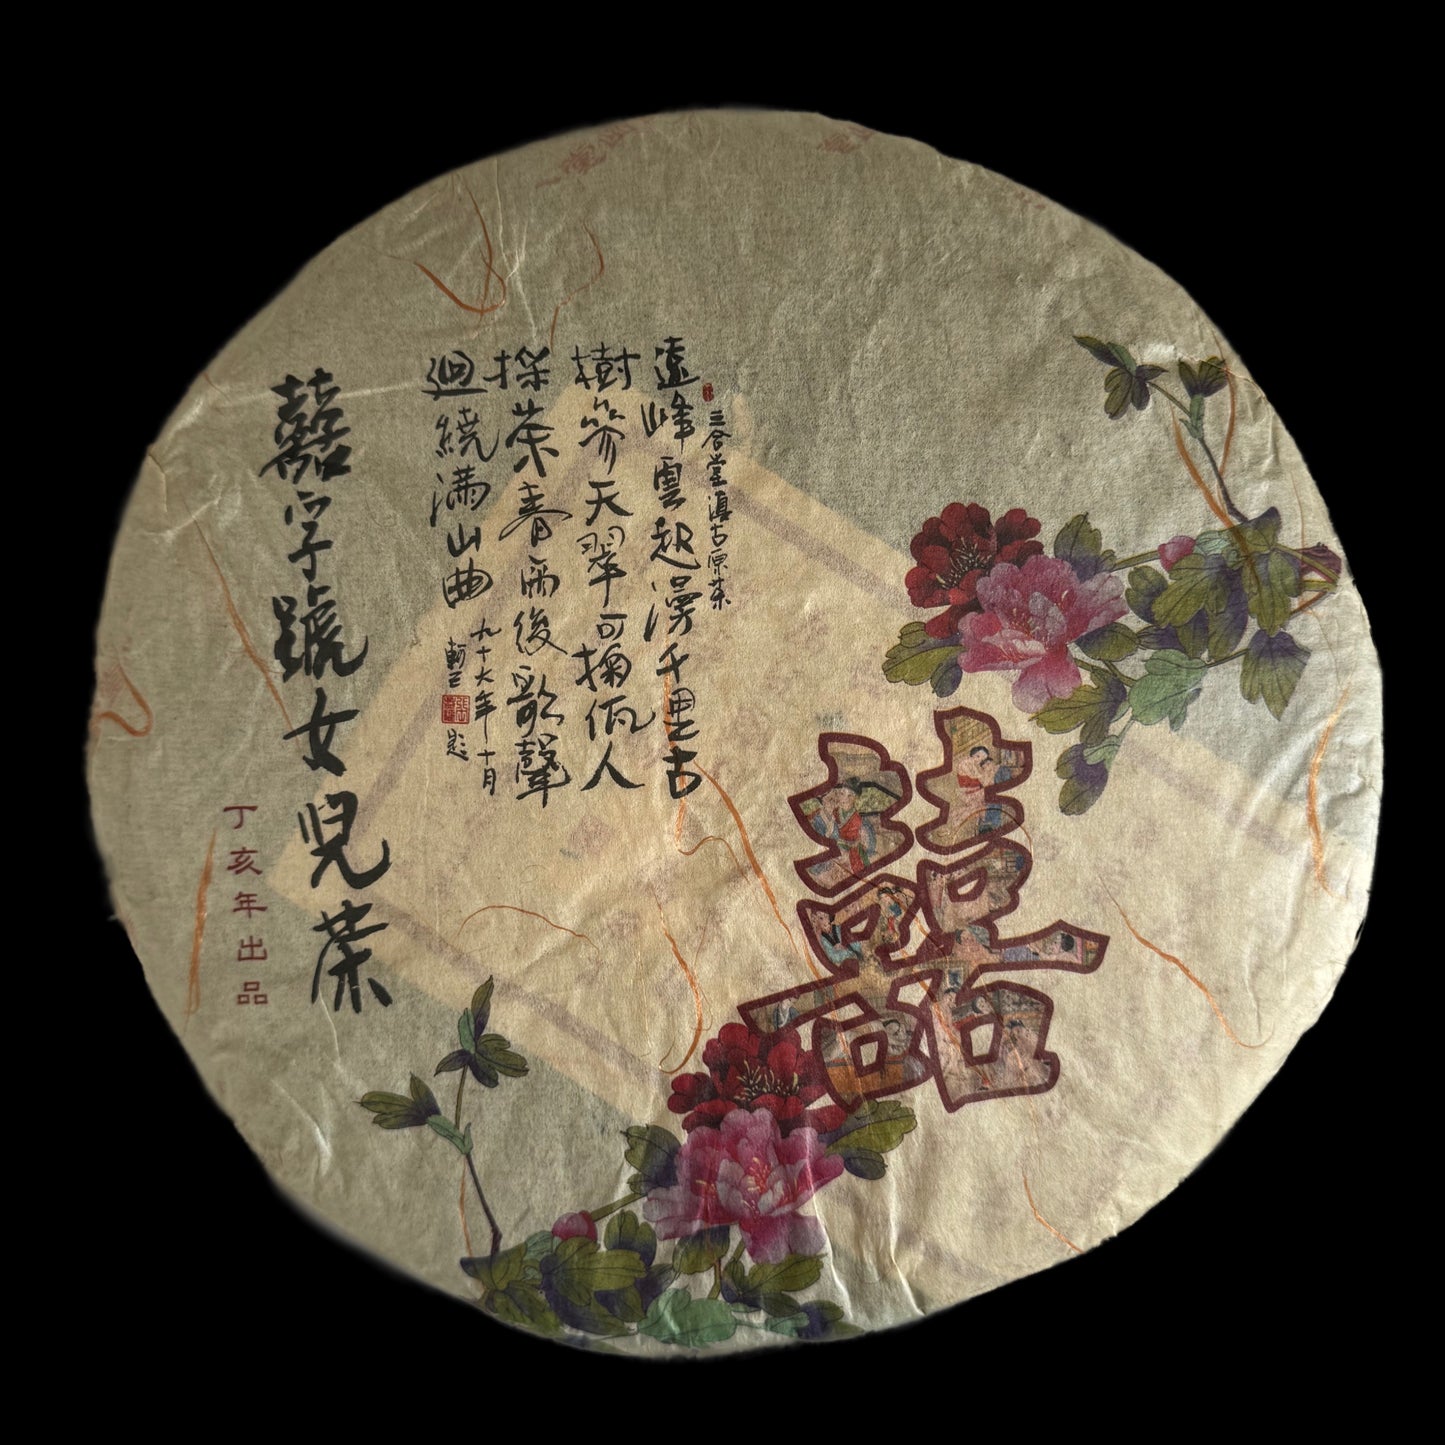 囍
三合堂滇古原茶
遠峰雲起漫千里古
樹參天翠可掬佤人
採茶春雨後歌聲
迴繞滿山曲
九十六年十月
題
囍字號女兒茶
丁亥年出品